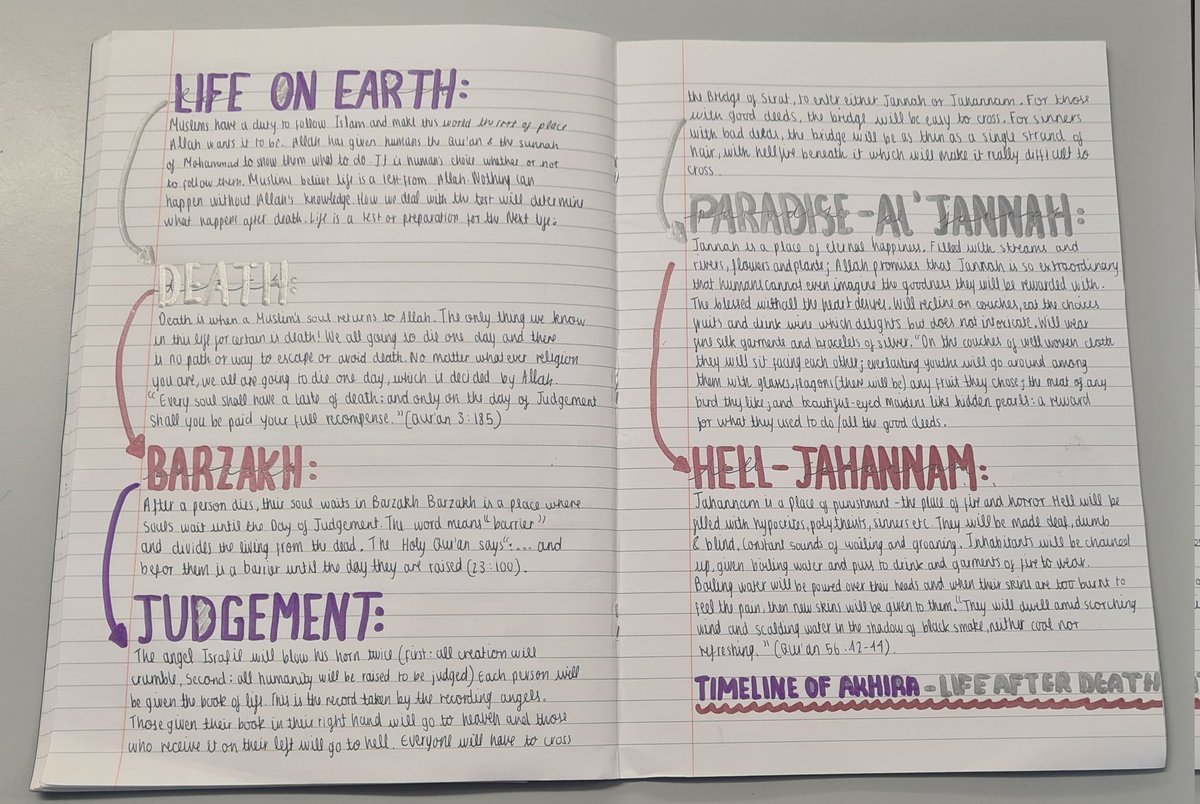 LIFE ON EARTH:
Muslims have a duty to follow Islam and make this world the sort of place
Allah wants it to be. Allah has given humans the Qur'an & the sunnah
of Mohammad to show them what to do. It is human's choice whether or not
to follow them. Muslims believe life is a test from Allah. Nothing can
happen without Allah's knowledge. How we deal with the test will determine
what happens after death. Life is a test or preparation for the Next life.
DEATH:
Death is when a Muslim's soul returns to Allah. The only thing we know
in this life for certain is death! We all going to die one day and there
is no path or way to escape or avoid death. No matter what ever religion
you are, we all are going to die one day, which is decided by Allah.
"Every soul shall have a taste of death: and only on the day of Judgement
shall you be paid your full recompense." (Qur'an 3:185)
BARZAKH:
After a person dies, their soul waits in Barzakh Barzakh is a place where
souls wait until the Day of Judgement. The word means "barrier"
and divides the living from the dead. The Holy Qur'an says ":... and
befor them is a barrier until the day they are raised (23:100).
JUDGEMENT:
The angel Israfil will blow his horn twice (first: all creation will
crumble, Second: all humanity will be raised to be judged) Each person will
be given the book of life. This is the record taken by the recording angels.
Those given their book in their right hand will go to heaven and those
who receive it on their left will go to hell. Everyone will have to cross
the Bridge of Sirat, to enter either Jannah or Jahannam. For those
with good deeds, the bridge will be easy to cross. For sinners
with bad deeds, the bridge will be as thin as a single strand of
hair, with hellfire beneath it which will make it really difficult to
cross.
PARADISE - AL'JANNAH:
Jannah is a place of eternal happiness. Filled with streams and
rivers, flowers and plants; Allah promises that Jannah is so extraordinary
that humans cannot even imagine the goodness they will be rewarded with.
The blessed with all the heart desires. Will recline on couches, eat the choices
fruits and drink wine which delights but does not intoxicate. Will wear
fine silk garments and bracelets of silver. "On the couches of well woven cloth
they will sit facing each other; everlasting youths will go around among
them with glasses, flagons (there will be) any fruit they chose; the meat of any
bird thy like; and beautiful-eyed maidens like hidden pearls: a reward
for what they used to do/all the good deeds.
HELL - JAHANNAM:
Jahannam is a place of punishment - the place of fire and horror. Hell will be
filled with hypocrites, polytheists, sinners etc. They will be made deaf, dumb
& blind, constant sounds of wailing and groaning. Inhabitants will be chained
up, given boiling water and puss to drink and garments of fire to wear.
Boiling water will be poured over their heads and when their skins are too burnt to
feel the pain, then new skins will be given to them. "They will dwell amid scorching
wind and scalding water in the shadow of black smoke, neither cool nor
refreshing." (Qur'an 56:42-44).
TIMELINE OF AKHIRA - LIFE AFTER DEATH